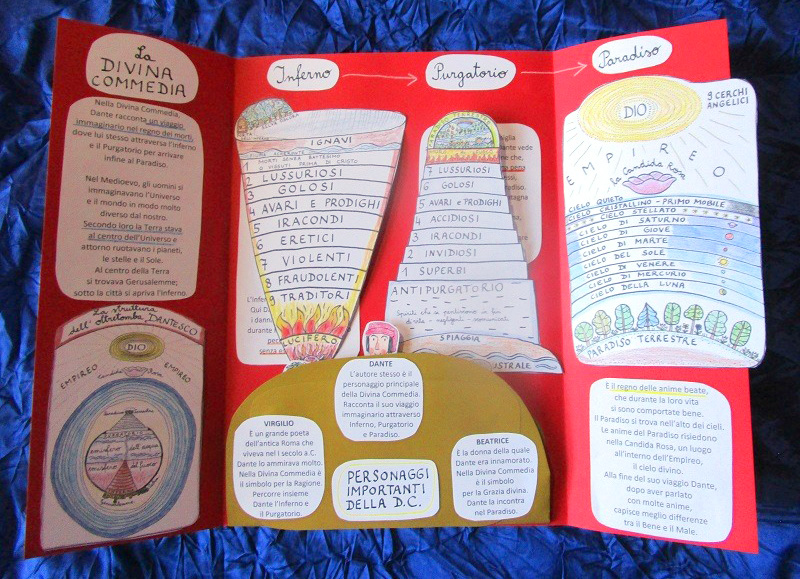 La
DIVINA
COMMEDIA
Nella Divina Commedia,
Dante racconta un viaggio
immaginario nel regno dei morti,
dove lui stesso attraversa l'Inferno
e il Purgatorio per arrivare
infine al Paradiso.
Nel Medioevo, gli uomini si
immaginavano l'Universo
e il mondo in modo molto
diverso dal nostro.
Secondo loro la Terra stava
al centro dell'Universo e
attorno ruotavano i pianeti,
le stelle e il Sole.
Al centro della Terra
si trovava Gerusalemme;
sotto la città si apriva l'inferno
La struttura
dell'oltretomba DANTESCO
DIO
EMPIREO
EMPIREO
Inferno
IGNAVI
1 MORTI SENZA BATTESIMO
O VISSUTI PRIMA DI CRISTO
2 LUSSURIOSI
3 GOLOSI
4 AVARI E PRODIGHI
5 IRACONDI
6 ERETICI
7 VIOLENTI
8 FRAUDOLENTI
9 TRADITORI
LUCIFERO
Purgatorio
7 LUSSURIOSI
6 GOLOSI
5 AVARI E PRODIGHI
4 ACCIDIOSI
3 IRACONDI
2 INVIDIOSI
1 SUPERBI
ANTIPURGATORIO
SPIAGGIA
Paradiso
9 CERCHI
ANGELICI
DIO
EMPIREO
La Candida Rosa
CIELO QUIETO
CIELO CRISTALLINO - PRIMO MOBILE
CIELO STELLATO
CIELO DI SATURNO
CIELO DI GIOVE
CIELO DI MARTE
CIELO DEL SOLE
CIELO DI VENERE
CIELO DI MERCURIO
CIELO DELLA LUNA
PARADISO TERRESTRE
È il regno delle anime beate,
che durante la loro vita
si sono comportate bene.
Il Paradiso si trova nell'alto dei cieli.
Le anime del Paradiso risiedono
nella Candida Rosa, un luogo
all'interno dell'Empireo,
il cielo divino.
Alla fine del suo viaggio Dante,
dopo aver parlato
con molte anime,
capisce meglio differenze
tra il Bene e il Male.
DANTE
L'autore stesso è il
personaggio principale
della Divina Commedia.
Racconta il suo viaggio
immaginario attraverso
Inferno, Purgatorio
e Paradiso.
VIRGILIO
È un grande poeta
dell'antica Roma che
viveva nel I secolo a.C.
Dante lo ammirava molto.
Nella Divina Commedia è
il simbolo per la Ragione.
Percorre insieme
Dante l'Inferno e
il Purgatorio.
PERSONAGGI
IMPORTANTI
DELLA D.C.
BEATRICE
È la donna della quale
Dante era innamorato.
Nella Divina Commedia
è il simbolo
per la Grazia divina.
Dante la incontra
nel Paradiso.